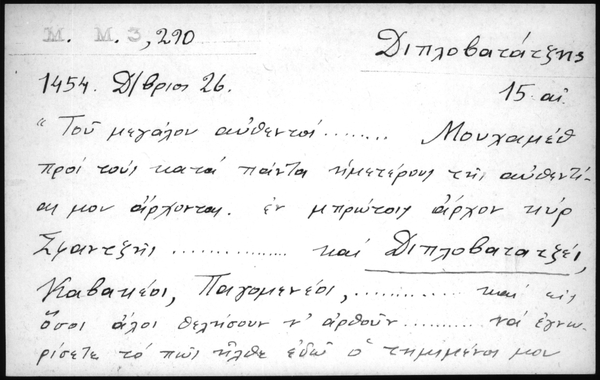 M. M. 3, 290
Διπλοβατάτζης
1454. Δ/βριος 26.
15 αἰ.
"Τοῦ μεγάλου αὐθεντός ........ Μουχαμέθ
πρός τούς κατά πάντα ἡμετέρους τῆς αὐθεντί-
ας μου ἄρχοντας. ἐν μπρώτοις ἄρχον κύρ
Σφαντζῆς ............... καί Διπλοβατατζέι,
Καβακέοι, Παγομενέοι, ............ καί εἰς
ὅσοι ἄλοι θελήσουν ν' ἀρθοῦν .......... νά ἐγνω-
ρίσετε τό πῶς ἦλθε ἐδῶ ὁ τημιμένος μου